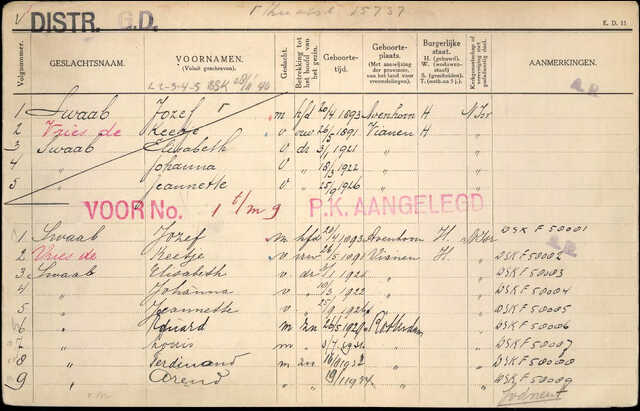 V DISTR. G.D. 15737 E. D. 11
Volgnummer. GESLACHTSNAAM. VOORNAMEN. (Voluit geschreven). Geslacht. Betrekking tot het hoofd van het gezin. Geboorte-tijd. Geboorte-plaats. (Met aanwijzing der provincie, en van het land voor vreemdelingen). Burgerlijke staat. H. (gehuwd). W. (weduwenstaat) S. (gescheiden). T. (ontb. na 5 j.). AANMERKINGEN.
1 Swaab Jozef m hfd 20/4 1893 Avenhorn H N Isr
2 Vries de Keetje v vrw 26/5 1891 Vianen H "
3 Swaab Elisabeth v dr 3/1 1921
4 " Johanna v 10/3 1922
5 " Jeannette v 25/9 1926
VOOR No. 1 t/m 9 P.K. AANGELEGD
1 Swaab Jozef m hfd 20/4 1893 Avenhorn H. N Isr DSK F 50001
2 Vries de Keetje v vrw 26/5 1891 Vianen H. " DSK F 50002
3 Swaab Elisabeth v dr 3/1 1921 " DSK F 50003
4 " Johanna v " 10/3 1922 " DSK F 50004
5 " Jeannette v " 25/9 " DSK F 50005
6 " Eduard m zn 26/5 1929 Rotterdam " DSK F 50006
7 " Louis m " " DSK F 50007
8 " Ferdinand m zn " DSK F 50008
9 " Arend " DSK F 50009